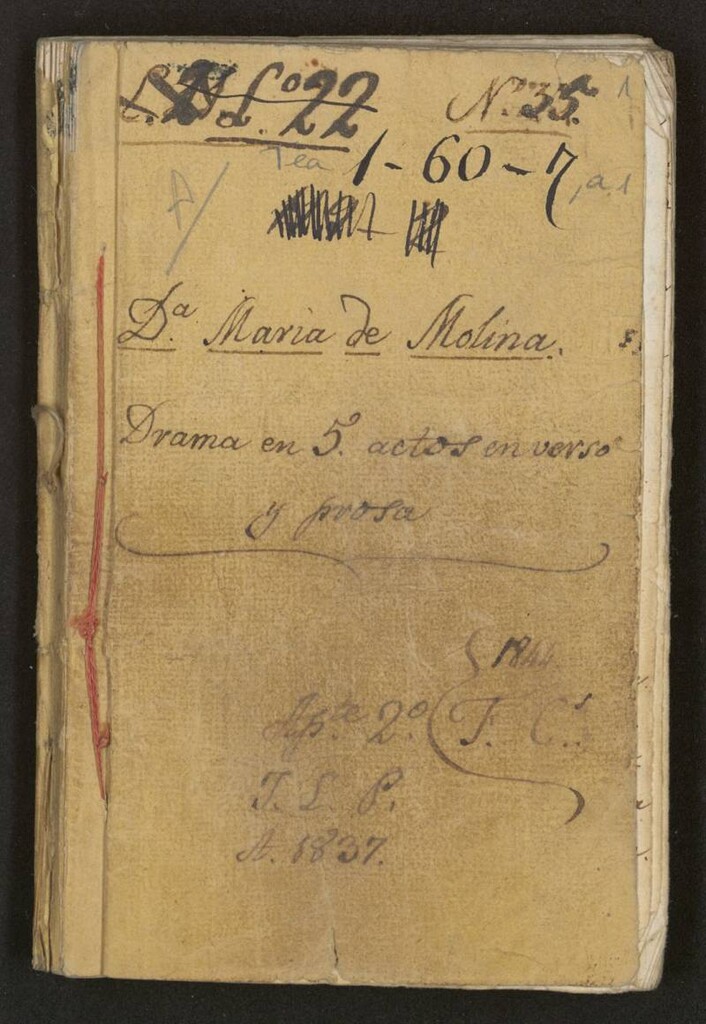 L.º 22 Nº 35. 1
Tea 1-60-7, a, 1
A/
D.ª Maria de Molina.
Drama en 5. actos en verso
y prosa
1844
Ap.te 2.º F. C.s
T. L. P.
A. 1837.